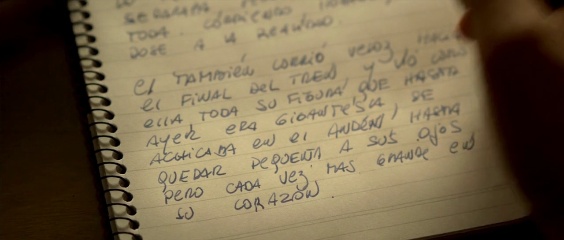 SEPARABA
TODA. CORRIENDO
DOSE A LA REALIDAD.
El TAMBIÉN CORRIÓ VELOZ HACIA
El FINAL DEL TREN Y VIÓ COMO
ELLA TODA SU FIGURA, QUE HASTA
AYER ERA GIGANTESCA SE
ACHICABA EN El ANDÉN, HASTA
QUEDAR PEQUEÑA A SUS OJOS
PERO CADA VEZ MAS GRANDE EN
SU CORAZÓN.